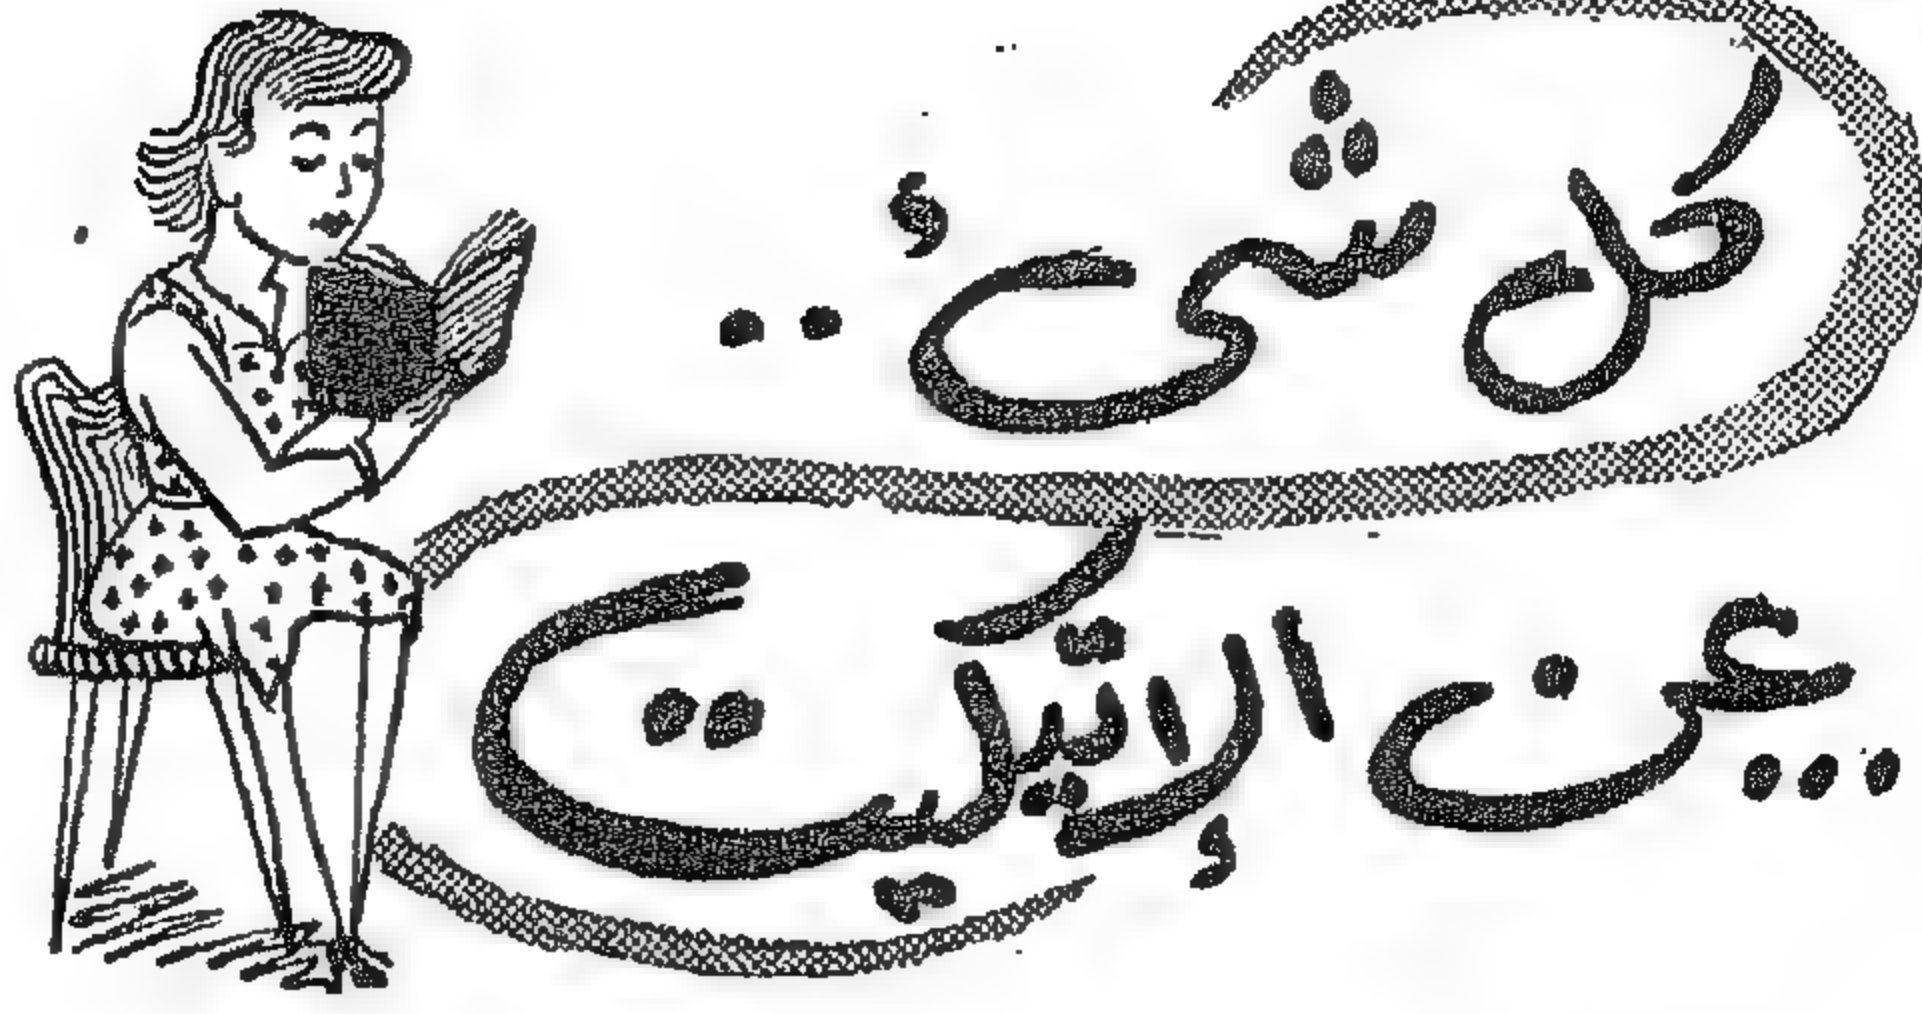 كل شىء ..
... عن الإتيكيت